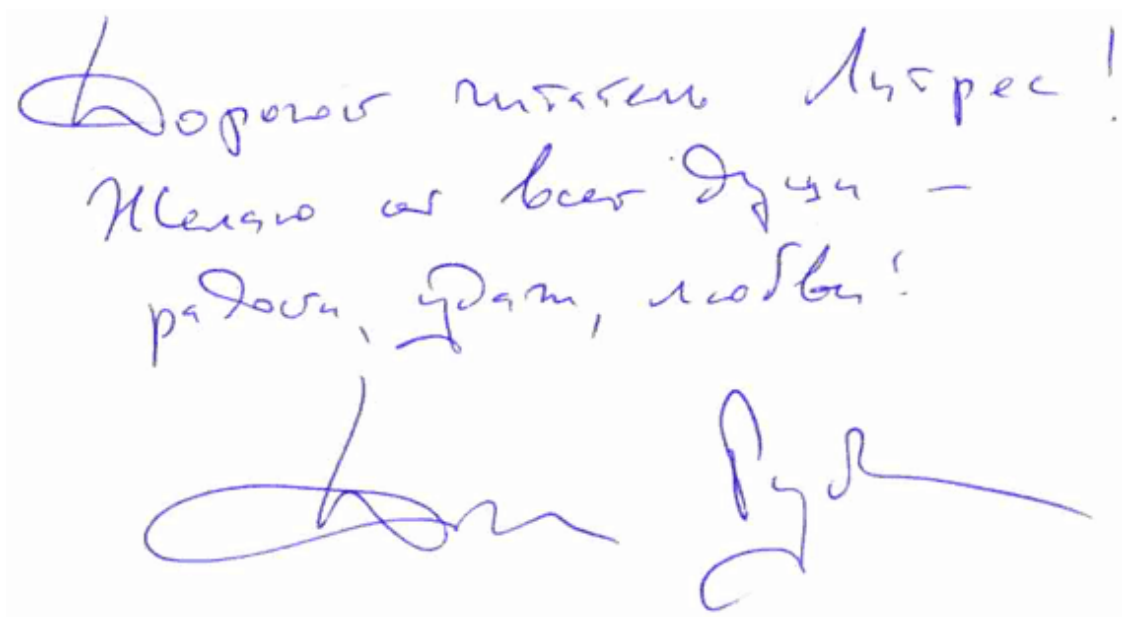 Дорогой читатель Литрес!
Желаю от всей души –
радости, удачи, любви!